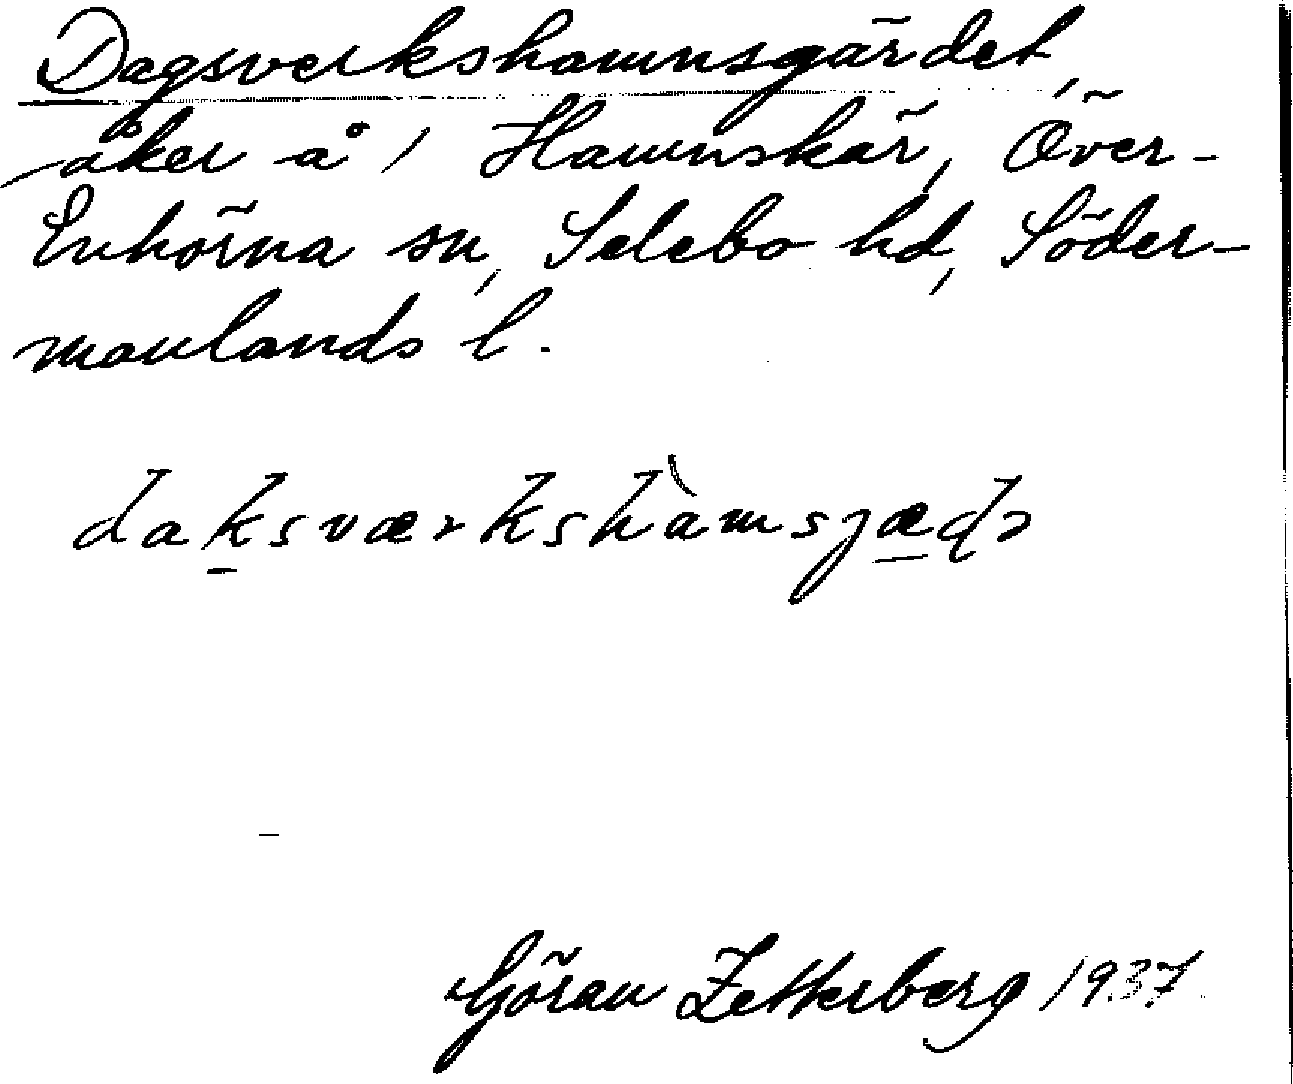 Dagsverkshamnsgärdet,
åker å 1 Hamnskär, Över-
Enhörna sn, Selebo hd, Söder-
manlands l.
daksværkshàmsjæḍə
Göran Zetterberg 1937